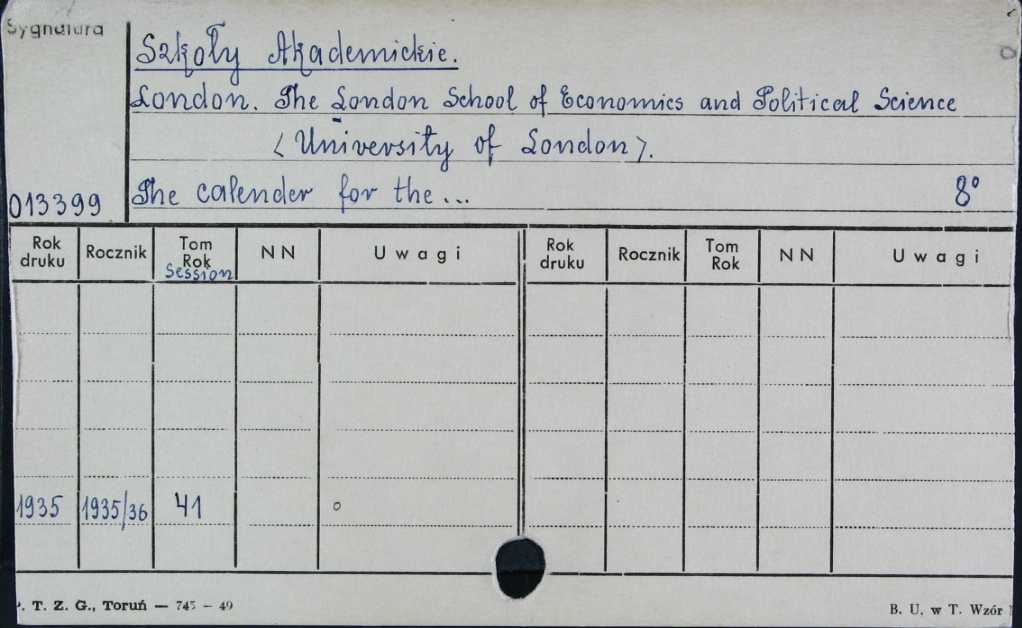 Sygnatura
Szkoły Akademickie.
London. The London School of Economics and Political Science
<University of London>.
013399 The calender for the... 8°
Rok druku Rocznik Tom Rok Session NN Uwagi Rok druku Rocznik Tom Rok NN Uwagi
1935 1935/36 41 o
. T. Z. G., Toruń — 745 — 49 B. U. w T. Wzór